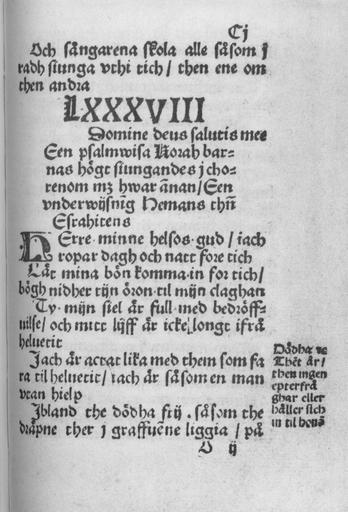 Cj
Och sångarena skola alle såsom j
radh siunga vthi tich / then ene om
then andra
LXXXVIII
Domine deus salutis mee
Een psalmwisa Korah bar=
nas högt siungandes j cho=
renom mz hwar ānan / Een
vnderwijsnīg Hemans thīī
Esrahitens
HErre minne helsos gud / iach
ropar dagh och natt fore tich
Låt mina bön komma in for tich /
bögh nidher tijn öron til mijn claghan
Ty mijn siel är full med bedröff=
uilse / och mitt lijff är icke longt ifrå
heluetit
Jach är actat lika med them som fa
ra til heluetit / iach är såsom en man
vtan hielp
Jbland the dödha frij . såsom the
dräpne ther j graffuēne liggia / på
Dödha ne
Thet är /
then ingen
epterfrå
ghar eller
håller sich
in til honō
D ij